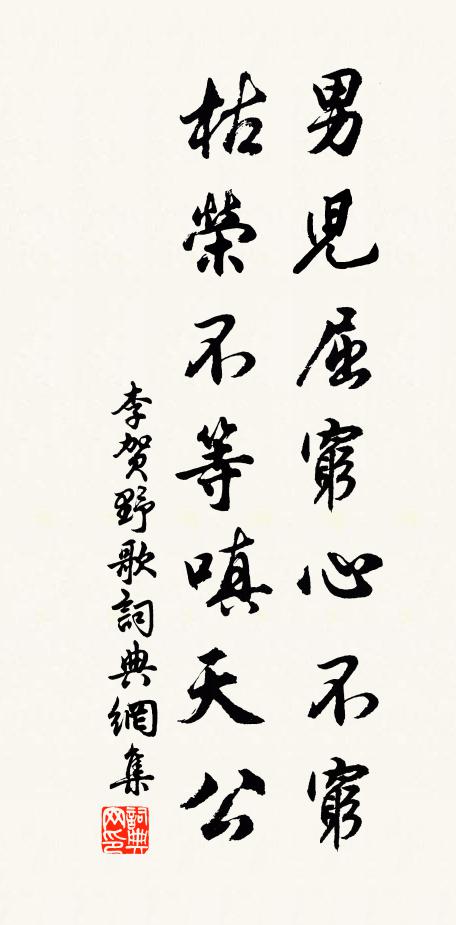 男兒屈窮心不窮
枯榮不等嗔天公
李賀野歌詞典網集
詞典网印